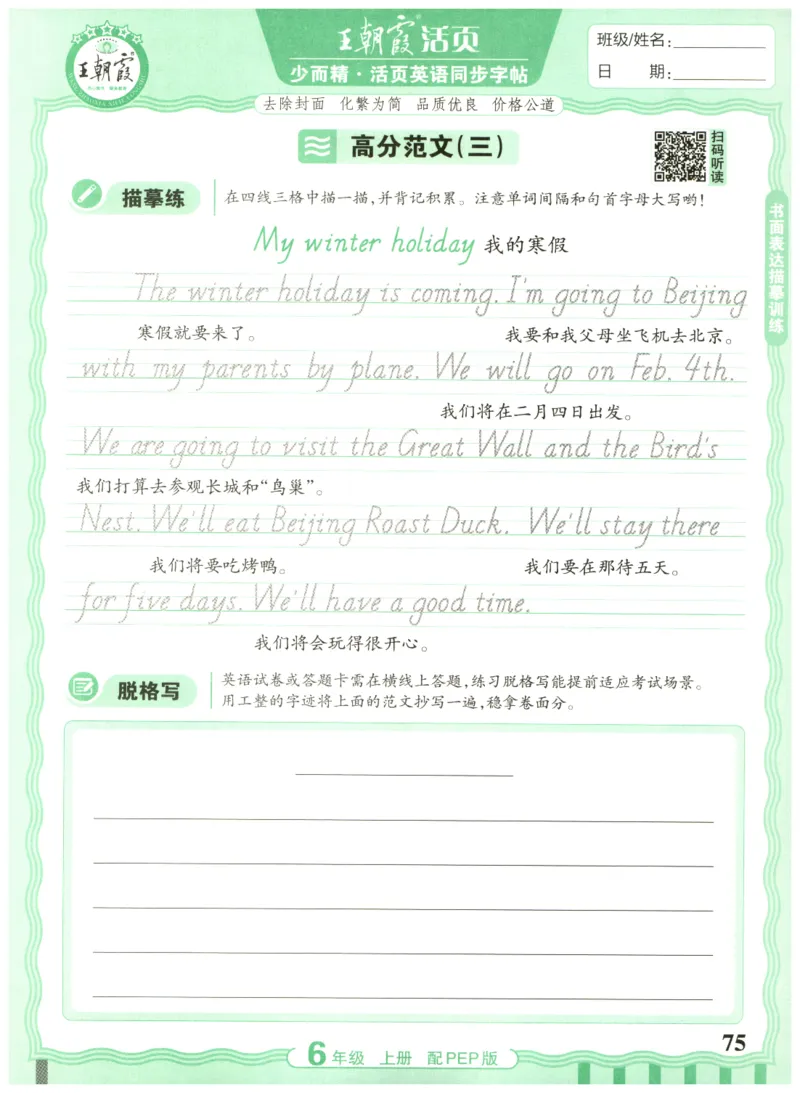 王朝霞活页
少而精·活页英语同步字帖
班级/姓名:
日 期:
王朝霞
去除封面 化繁为简 品质优良 价格公道
高分范文(三)
扫码听读
描摹练
在四线三格中描一描,并背记积累。注意单词间隔和句首字母大写哟!
书面表达描摹训练
My winter holiday 我的寒假
The winter holiday is coming. I'm going to Beijing
寒假就要来了。 我要和我父母坐飞机去北京。
with my parents by plane. We will go on Feb. 4th.
我们将在二月四日出发。
We are going to visit the Great Wall and the Bird's
我们打算去参观长城和“鸟巢”。
Nest. We'll eat Beijing Roast Duck. We'll stay there
我们将要吃烤鸭。 我们要在那待五天。
for five days. We'll have a good time.
我们将会玩得很开心。
脱格写
英语试卷或答题卡需在横线上答题,练习脱格写能提前适应考试场景。
用工整的字迹将上面的范文抄写一遍,稳拿卷面分。
75
6年级 上册 配PEP版